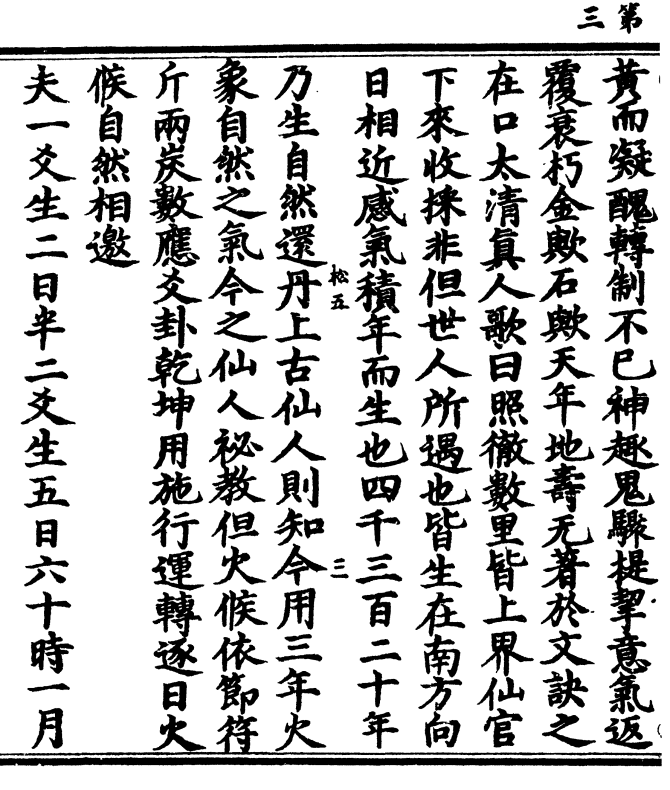 第三
黃而凝醜轉制不已神趣鬼驟提挈意氣返
覆衰朽金歟石歟天年地壽无著於文訣之
在口太清眞人歌曰照徹數里皆上界仙官
下來收採非但世人所遇也皆生在南方向
日相近感氣積年而生也四千三百二十年
松五
三
乃生自然還丹上古仙人則知今用三年火
象自然之氣今之仙人祕教但火候依節符
斤兩炭數應爻卦乾坤用施行運轉逐日火
候自然相邀
夫一爻生二日半二爻生五日六十時一月